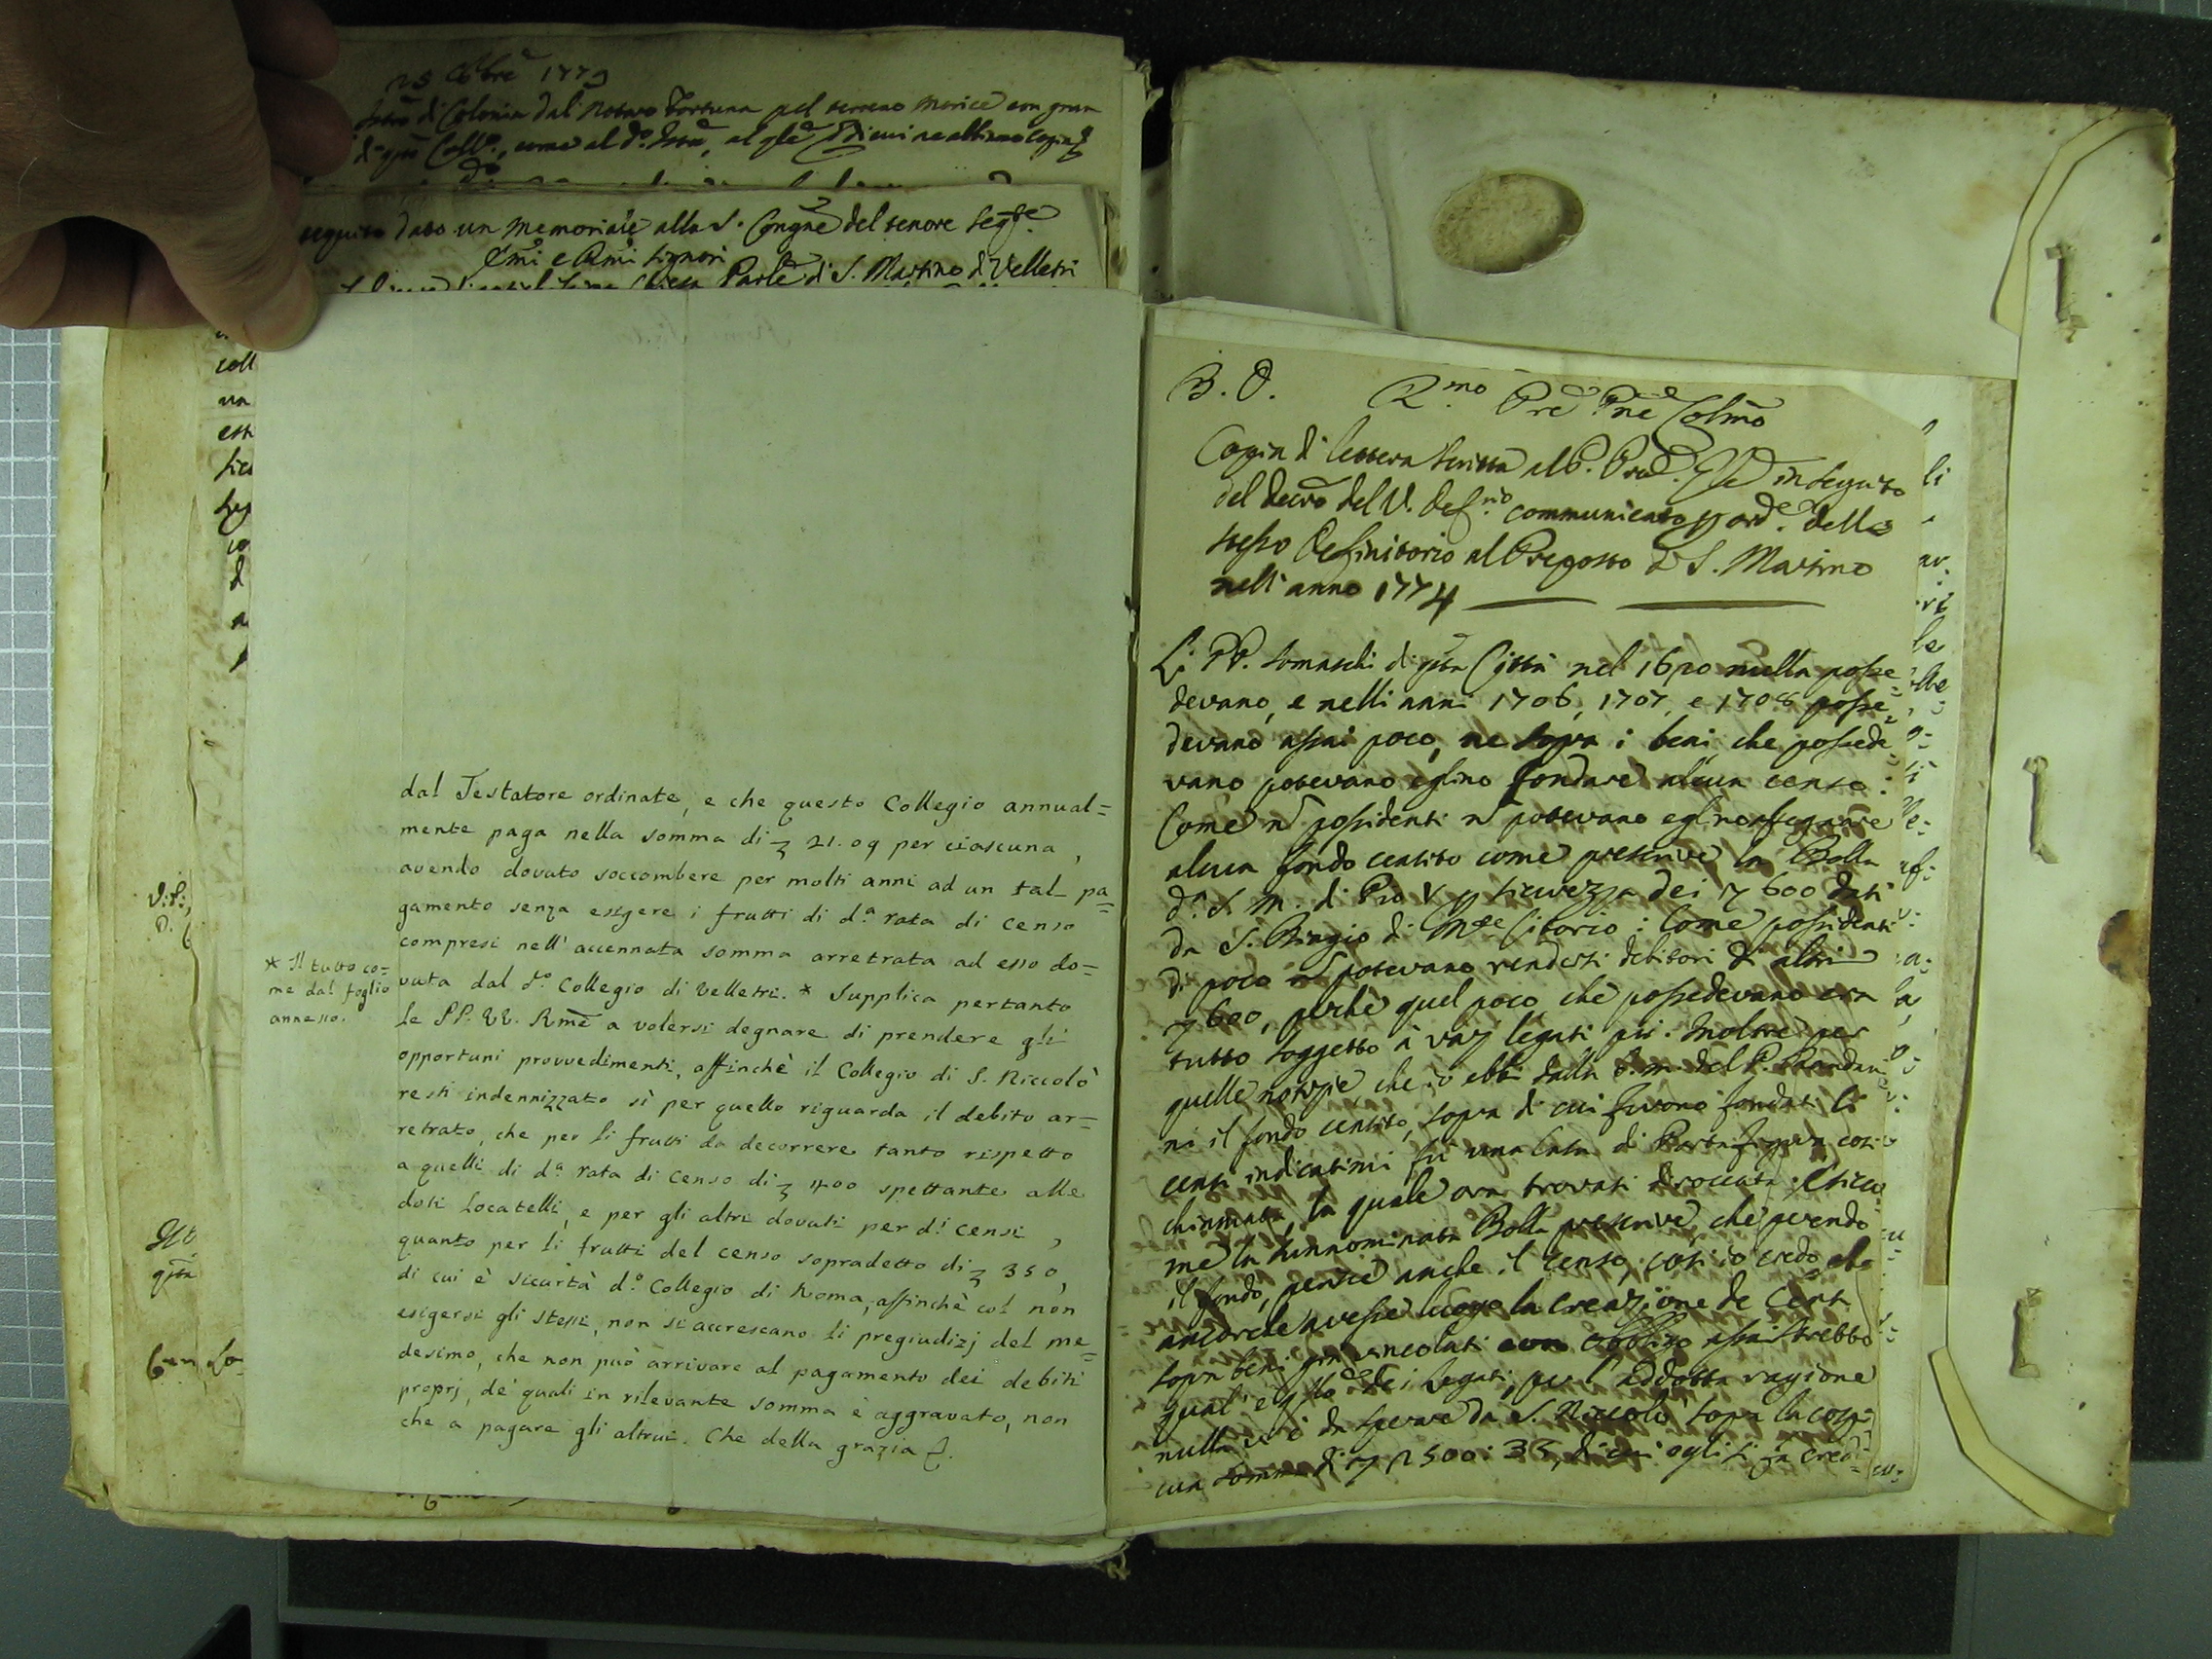 25 Xbre 1779
di Colonia dal Notaro Fortuna pel terreno Morice con gran
come al do. al qle di cui ne abbiamo copia
seguito dato un Memoriale alla S. Congne del tenore segte
Emi e Rmi Signori
Parle di S. Martino di Velletri
dal Testatore ordinate, e che questo Collegio annual=
mente paga nella somma di 21.09 per ciascuna,
avendo dovuto soccombere per molti anni ad un tal pa=
gamento senza esigere i frutti di da. rata di censo
compresi nell'accennata somma arretrata ad esso do=
vuta dal do. Collegio di Velletri. * Supplica pertanto
le PP. VV. Rme a volersi degnare di prendere gli
opportuni provvedimenti, affinchè il Collegio di S. Niccolò
resti indennizzato sì per quello riguarda il debito ar=
retrato, che per li frutti da decorrere tanto rispetto
a quelli di da. rata di censo di 400 spettante alle
doti Locatelli, e per gli altri dovuti per di. censi,
quanto per li frutti del censo sopradetto di 350,
di cui è sicurtà do. Collegio di Roma, affinchè col non
esigersi gli stessi, non si accrescano li pregiudizj del me=
desimo, che non può arrivare al pagamento dei debiti
proprj, de' quali in rilevante somma è aggravato, non
che a pagare gli altrui. Che della grazia
* Il tutto co=
me dal foglio
annesso.
B. D. Rmo Pre Pne Colmo
Copia di lettera scritta al P. in seguito
del decro del V. Defrio communicato p ord.e dello
stesso Definitorio al Preposto di S. Martino
nell'anno 1774
Li PP. Somaschi di qta Città nel 1620 nulla posse
devano, e nelli anni 1706, 1707, e 1708 posse=
devano assai poco, ne sopra i beni che possede
vano potevano eglino fondare alcun censo:
Come n possidenti n potevano eglino assegnare
alcun fondo censito come prescrive la Bolla
da. S. M. di Pio V p sicurezza dei 600 dati
da S. Biagio di Mte Citorio: Come possidenti
di poco n potevano rendersi debitori di altri
600, perchè quel poco che possedevano era
tutto soggetto à varj legati pii. Inoltre per
quelle notizie che io ebbi dalla b. m. del P.
ni il fondo censito, sopra di cui furono fondati li
censi indicatimi fù una casa di Porta così
chiamata, la quale ora trovasi diroccata: Sicco
me la sunnominata Bolla prescrive, che perendo
il fondo, perisce anche il censo, così io credo che
ancorche avesse luogo la creazione de Censi
sopra beni già vincolati con obbligo
qual'è qllo dei legati, per l'addotta ragione
nulla vi è da sperare da S. Niccolò sopra la cospi
cua somma di 2500:35, di cui egli si fà cred